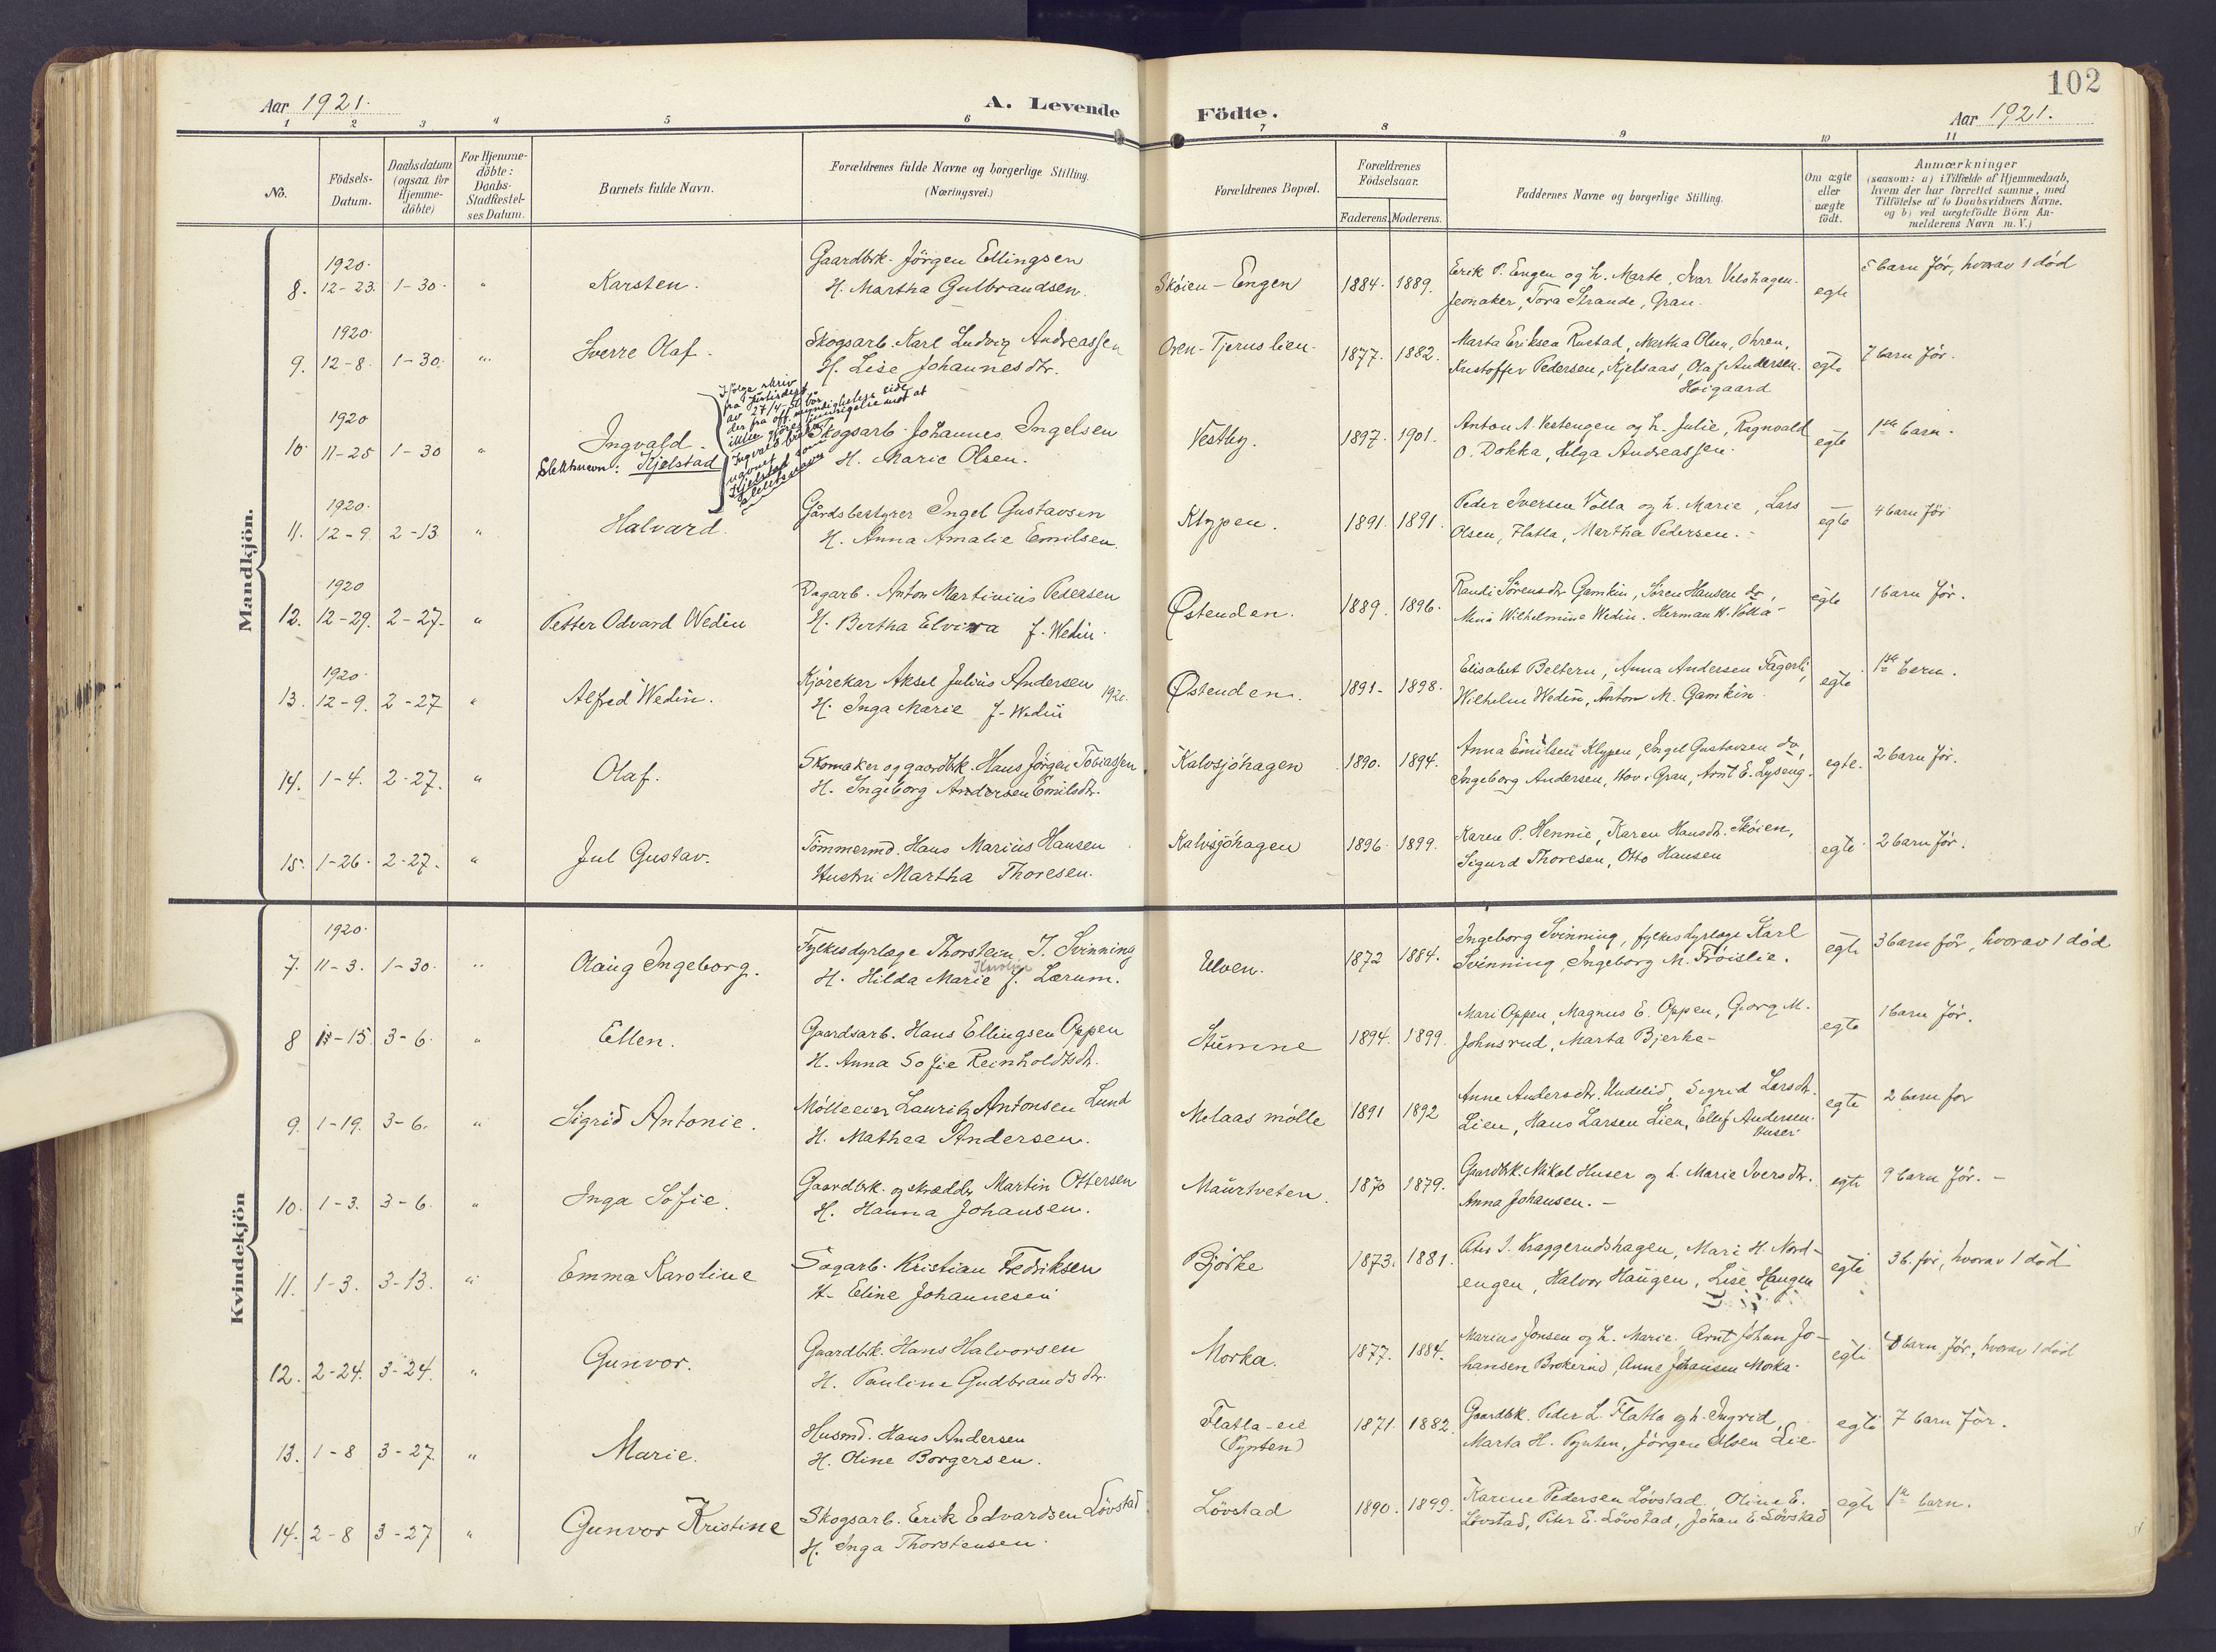 102
Aar 1921.
A. Levende Födte.
Aar 1921.
1 2 3 4 5 6 7 8 9 10 11
No.
Födsels-Datum.
Daabsdatum (ogsaa for Hjemme-döbte)
For Hjemme-döbte: Daabs-Stadfæstel-ses Datum.
Barnets fulde Navn.
Forældrenes fulde Navne og borgerlige Stilling.
(Næringsvei.)
Forældrenes Bopæl.
Forældrenes Födselsaar.
Faderens. Moderens.
Faddernes Navne og borgerlige Stilling.
Om ægte eller uægte födt.
Anmærkninger
(saasom: a) i Tilfælde af Hjemmedaab,
hvem der har forrettet samme, med
Tilföielse af to Daabsvidners Navne.
og b) ved uægtefödte Börn An-
melderens Navn m. V.)
Mandkjön.
1920.
8. 12-23. 1-30. " Karsten.
Gaardbrk. Jörgen Ellingsen
H. Martha Gulbrandsen.
Skóien-Engen 1884. 1889.
Erik P. Engen og h. Marte, Ivar
Jeonaker, Tora Strande, Gran.
egte
5 barn för, hvorav 1 död
1920.
9. 12-8. 1-30. " Sverre Olaf.
Skogsarb. Karl Ludvig Andreassen
H. Lise Johannesdtr.
Oren-Tjeruslien. 1877. 1882.
Marta Eriksen Rustad, Martha Olsen, Ohren,
Kristoffer Pedersen, Kjelsaas, Olaf Andersen.
Höigaard
egte
7 barn för.
1920
10. 11-25 1-30 " Ingvald.
Slektsnavn: Kjelstad
Ifölge skriv
fra Justisdept
av 27/4-51 bör
der fra off. myndigheters side
ikke gjöres innsigelse mot at
Ingvald bruker
navnet
Kjelstad som
slektsnavn
Skogsarb. Johannes Ingelsen
H. Marie Olsen.
Vestby. 1897. 1901.
Anton A. Vestengen og h. Julie, Ragnvald
O. Dokka, Helga Andreassen.
egte
1ste barn.
1920.
11. 12-9. 2-13. " Halvard.
Gårdsbestyrer Ingel Gustavsen
H. Anna Amalie Emilsen.
Klypen. 1891. 1891.
Peder Iversen Volla og h. Marie, Lars
Olsen, Flatla, Martha Pedersen.-
egte
4 barn för
1920
12. 12-29. 2-27. " Petter Odvard Wedin
Dagarb. Anton Martinius Pedersen
H. Bertha Elvira f. Wedin.
Östenden. 1889. 1896.
Randi Sörensdtr Gamkin, Sören Hansen do,
Mina Wilhelmine Wedin. Herman H. Volla-
egte
1 barn för.
1920.
13. 12-9. 2-27 " Alfred Wedin.
Kjörekar Aksel Julius Andersen
H. Inga Marie f. Wedin 1920.
Östenden. 1891- 1898.
Elisabet Beltern, Anna Andersen Fagerli,
Wilhelm Wedin, Anton M. Gamkin.
egte
1ste barn.
14. 1-4. 2-27. " Olaf.
Skomaker og gaardbrk. Hans Jörgen Tobiassen
H. Ingeborg Andersen Emilsdtr.
Kalvsjöhagen 1890. 1894.
Anna Emilsen Klypen, Ingel Gustavsen do,
Ingeborg Andersen, Hov i Gran, Arnt E. Lyseng.
egte.
2 barn för.
15. 1-26. 2-27. " Jul Gustav.
Tömmermd. Hans Marius Hansen
Hustru Martha Thoresen.
Kalvsjöhagen 1896. 1899.
Karen P. Hennie, Karen Hansdtr. Skóien,
Sigurd Thoresen, Otto Hansen
egte.
2 barn för.
Kvindekjön
1920.
7. 11-3. 1-30. " Olaug Ingeborg.
Fylkesdyrlæge Thorstein J. Svinning
Karoline
H. Hilda Marie f. Lærum.
Ulven. 1872 1884.
Ingeborg Svinning, fylkesdyrlæge Karl
Svinning, Ingeborg M. Fröislie.
egte
3 barn för, hvorav 1 död
8 -15. 3-6. " Ellen.
Gaardsarb. Hans Ellingsen Oppen
H. Anna Sofie Reinholdtsdtr.
Stumne 1894. 1899.
Mari Oppen, Magnus E. Oppen, Georg M.
Johnsrud, Marta Bjerke-
egte
1 barn för.
9. 1-19. 3-6. " Sigrid Antonie.
Mölleeier Lauritz Antonsen Lund
H. Mathea Andersen.
Melaas mölle 1891 1892
Anne Andersdtr. Undelid, Sigrid Larsdtr.
Lien, Hans Larsen Lien, Ellef Andersen.
Huser
egte
2 barn for
10. 1-3. 3-6. " Inga Sofie.
Gaardbrk. og skrædder Martin Ottersen
H. Hanna Johansen.
Maurtveten. 1870 1879.
Gaardbrk. Nikol. Huser og h. Marie Iversdtr.
Anna Johansen.-
egte
9 barn för.-
11. 1-3. 3-13. " Emma Karoline
Sagarb. Kristian Fredriksen
H. Eline Johannesen
Björke 1873. 1881.
Peter J. Kraggerudshagen, Mari H. Nord-
engen, Halvor Haugen, Lise Haugen
egte
3 b. för, hvorav 1 död
12. 2-24. 3-24. " Gunvor.
Gaardbk. Hans Halvorsen
H. Pauline Gudbrandsdtr.
Morka. 1877. 1884.
Marius Jonsen og h. Marie. Arnt Johan Jo-
hansen Brokerud, Anne Johansen Moka.
egte
barn för, hvorav 1 död
13. 1-8 3-27. " Marie.
Husmd. Hans Andersen
H. Oline Borgersen.
Flatla-eie
(Pynten) 1871. 1882.
Gaardbk. Peder L. Flatla og h. Ingrid,
Marta H. Pynten, Jörgen Olsen Lie-
egte
7 barn för.
14. 2-8 3-27 " Gunvor Kristine
Skogsarb. Erik Edvardsen Lövstad
H. Inga Thorstensen.
Lövstad 1890. 1899.
Karine Pedersen Lövstad, Oline E.
Lövstad, Peter E. Lövstad, Johan E. Lövstad
egte
1te barn.